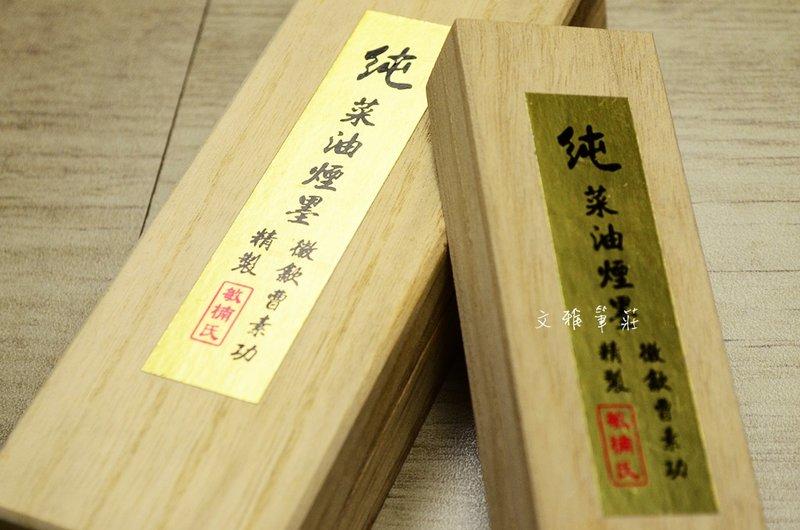 純菜油煙墨
徽歙曹素功
精製
敏楠氏
純菜油煙墨
徽歙曹素功
精製
敏楠氏
文雅筆莊